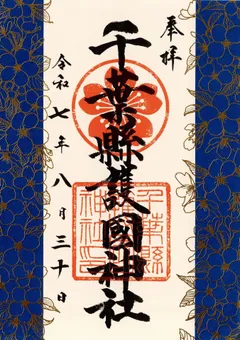 奉拝
千葉縣護國神社
令和七年八月三十日
千葉縣護國神社印